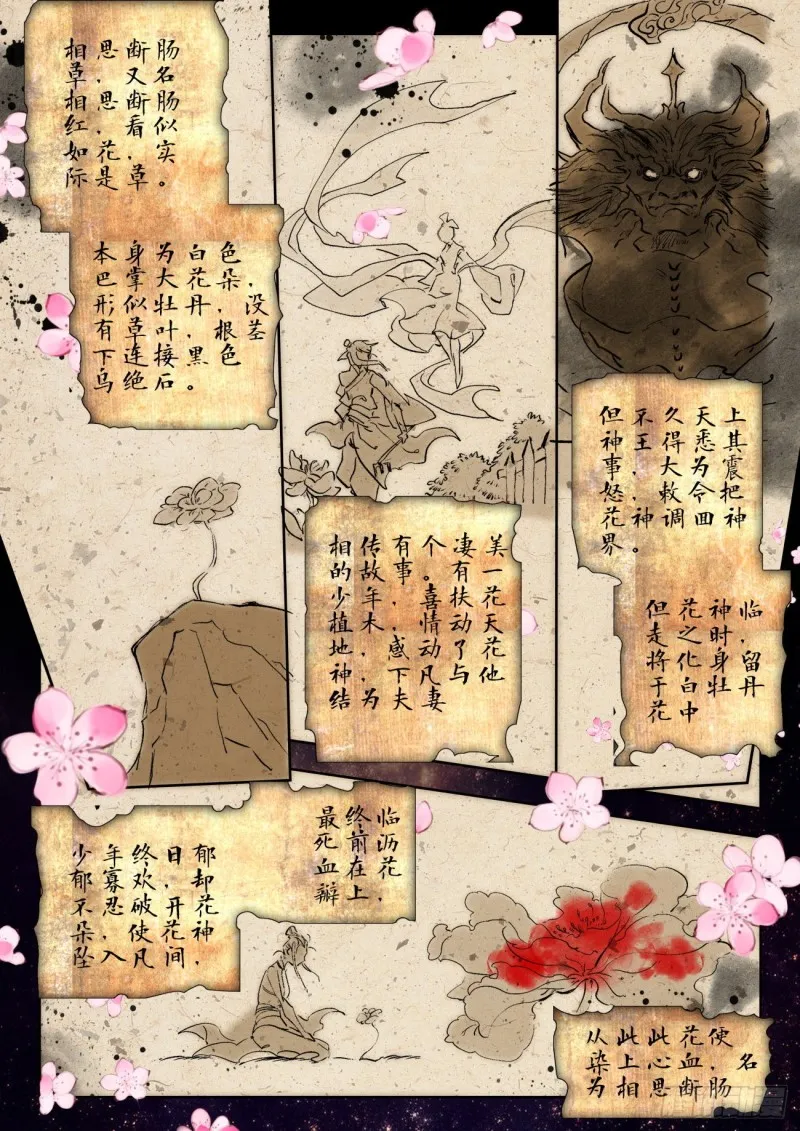 相思断肠
草,又名
相思断肠
红,看似
如花,实
际是草。
本身为白色
巴掌大花朵,
形似牡丹,没
有草叶,根茎
下连接黑色
乌绝石。
相传有个凄美
的故事。有一
少年,喜扶花
植木,情动天
地,感动了花
神,下凡与他
结为夫妻
但不久天上
神王得悉其
事,大为震
怒,敕令把
花神调回神
界。
但花神临
走之时,
将化身留
于白牡丹
花中
少年终日郁
郁寡欢,却
不忍破开花
朵,使花神,
坠入凡间,
最终临
死前沥
血在花
瓣上,
从此此花便
染上心血,名
为相思断肠